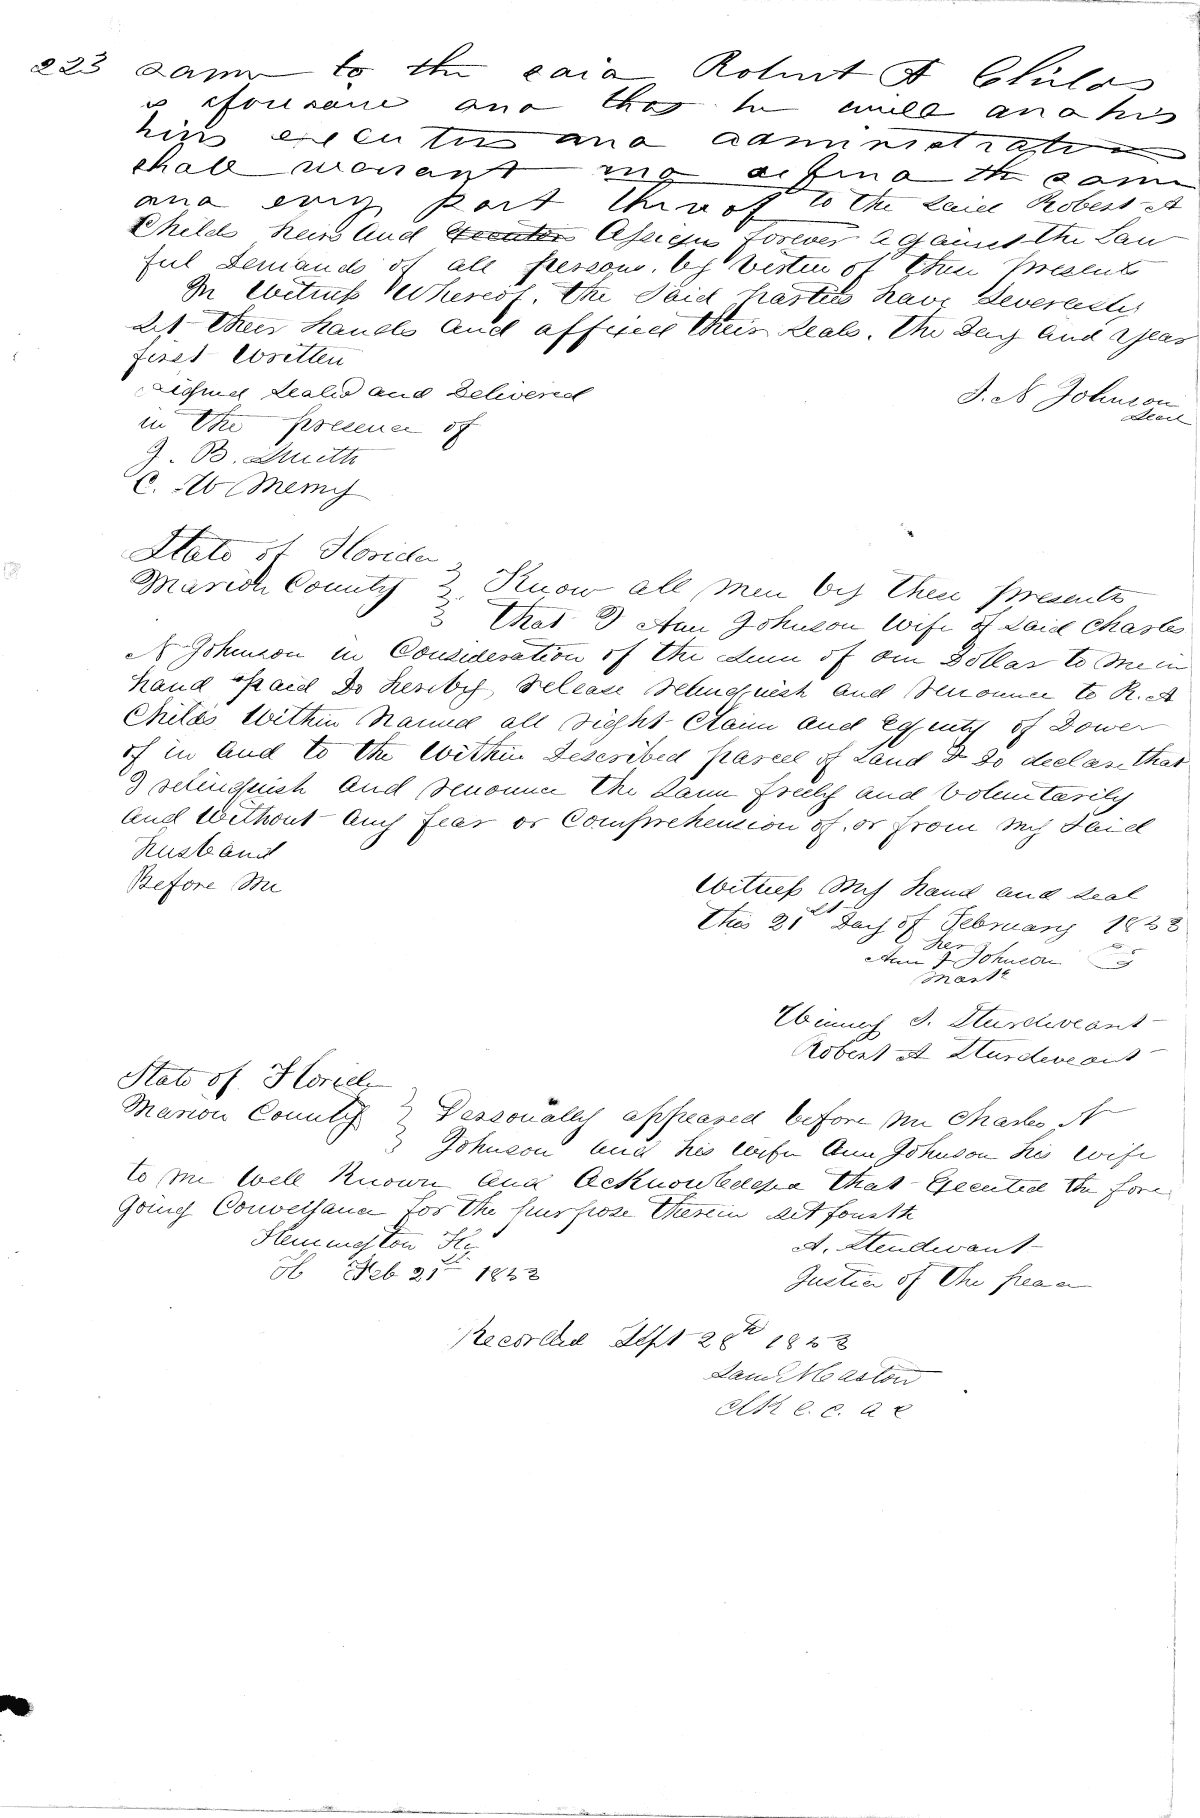 223 same to the said Robert A Childs
is aforesaid and that he will and his
hiers executors and administrators
shall warrant and defend the same
and every part thereof to the said Robert A
Childs heirs and Executors Assigns forever against the Law
ful Demands of all persons. by Virtue of these presents
In Witness Whereof. the said parties have Severally
Set their hands and affixed their seals. the Day and year
first Written
Signed Sealed and Delivered
in the presence of
J. N Johnson
Seal
J. B. Smith
C. W
State of Florida
Marion County Know all men by these presents
that I Ann Johnson wife of said Charles
N Johnson in Consideration of the sum of one Dollar to me in
hand paid Do hereby release relinquish and renounce to R. A
Childs Within Named all right Claim and Equity of Dower
of in and to the Within Described parcel of Land I do declare that
I relinquish and renounce the same freely and Voluntarily
and Without any fear or Comprehension of. or from my said
Husband
Before me
Witness my hand and seal
this 21st Day of February 1853
her
Ann J Johnson
mark
J. Sturdiveant
Robert A Sturdeveant
State of Florida
Marion County Personally appeared before me Charles N
Johnson and his wife Ann Johnson his wife
to me well Known and Acknowledged that Executed the fore
going Conveyance for the purpose therein set fourth
A. Sturdivant
Feb 21st 1853
Justice of the peace
Recorded Sept 28th 1853
Clk c. c.